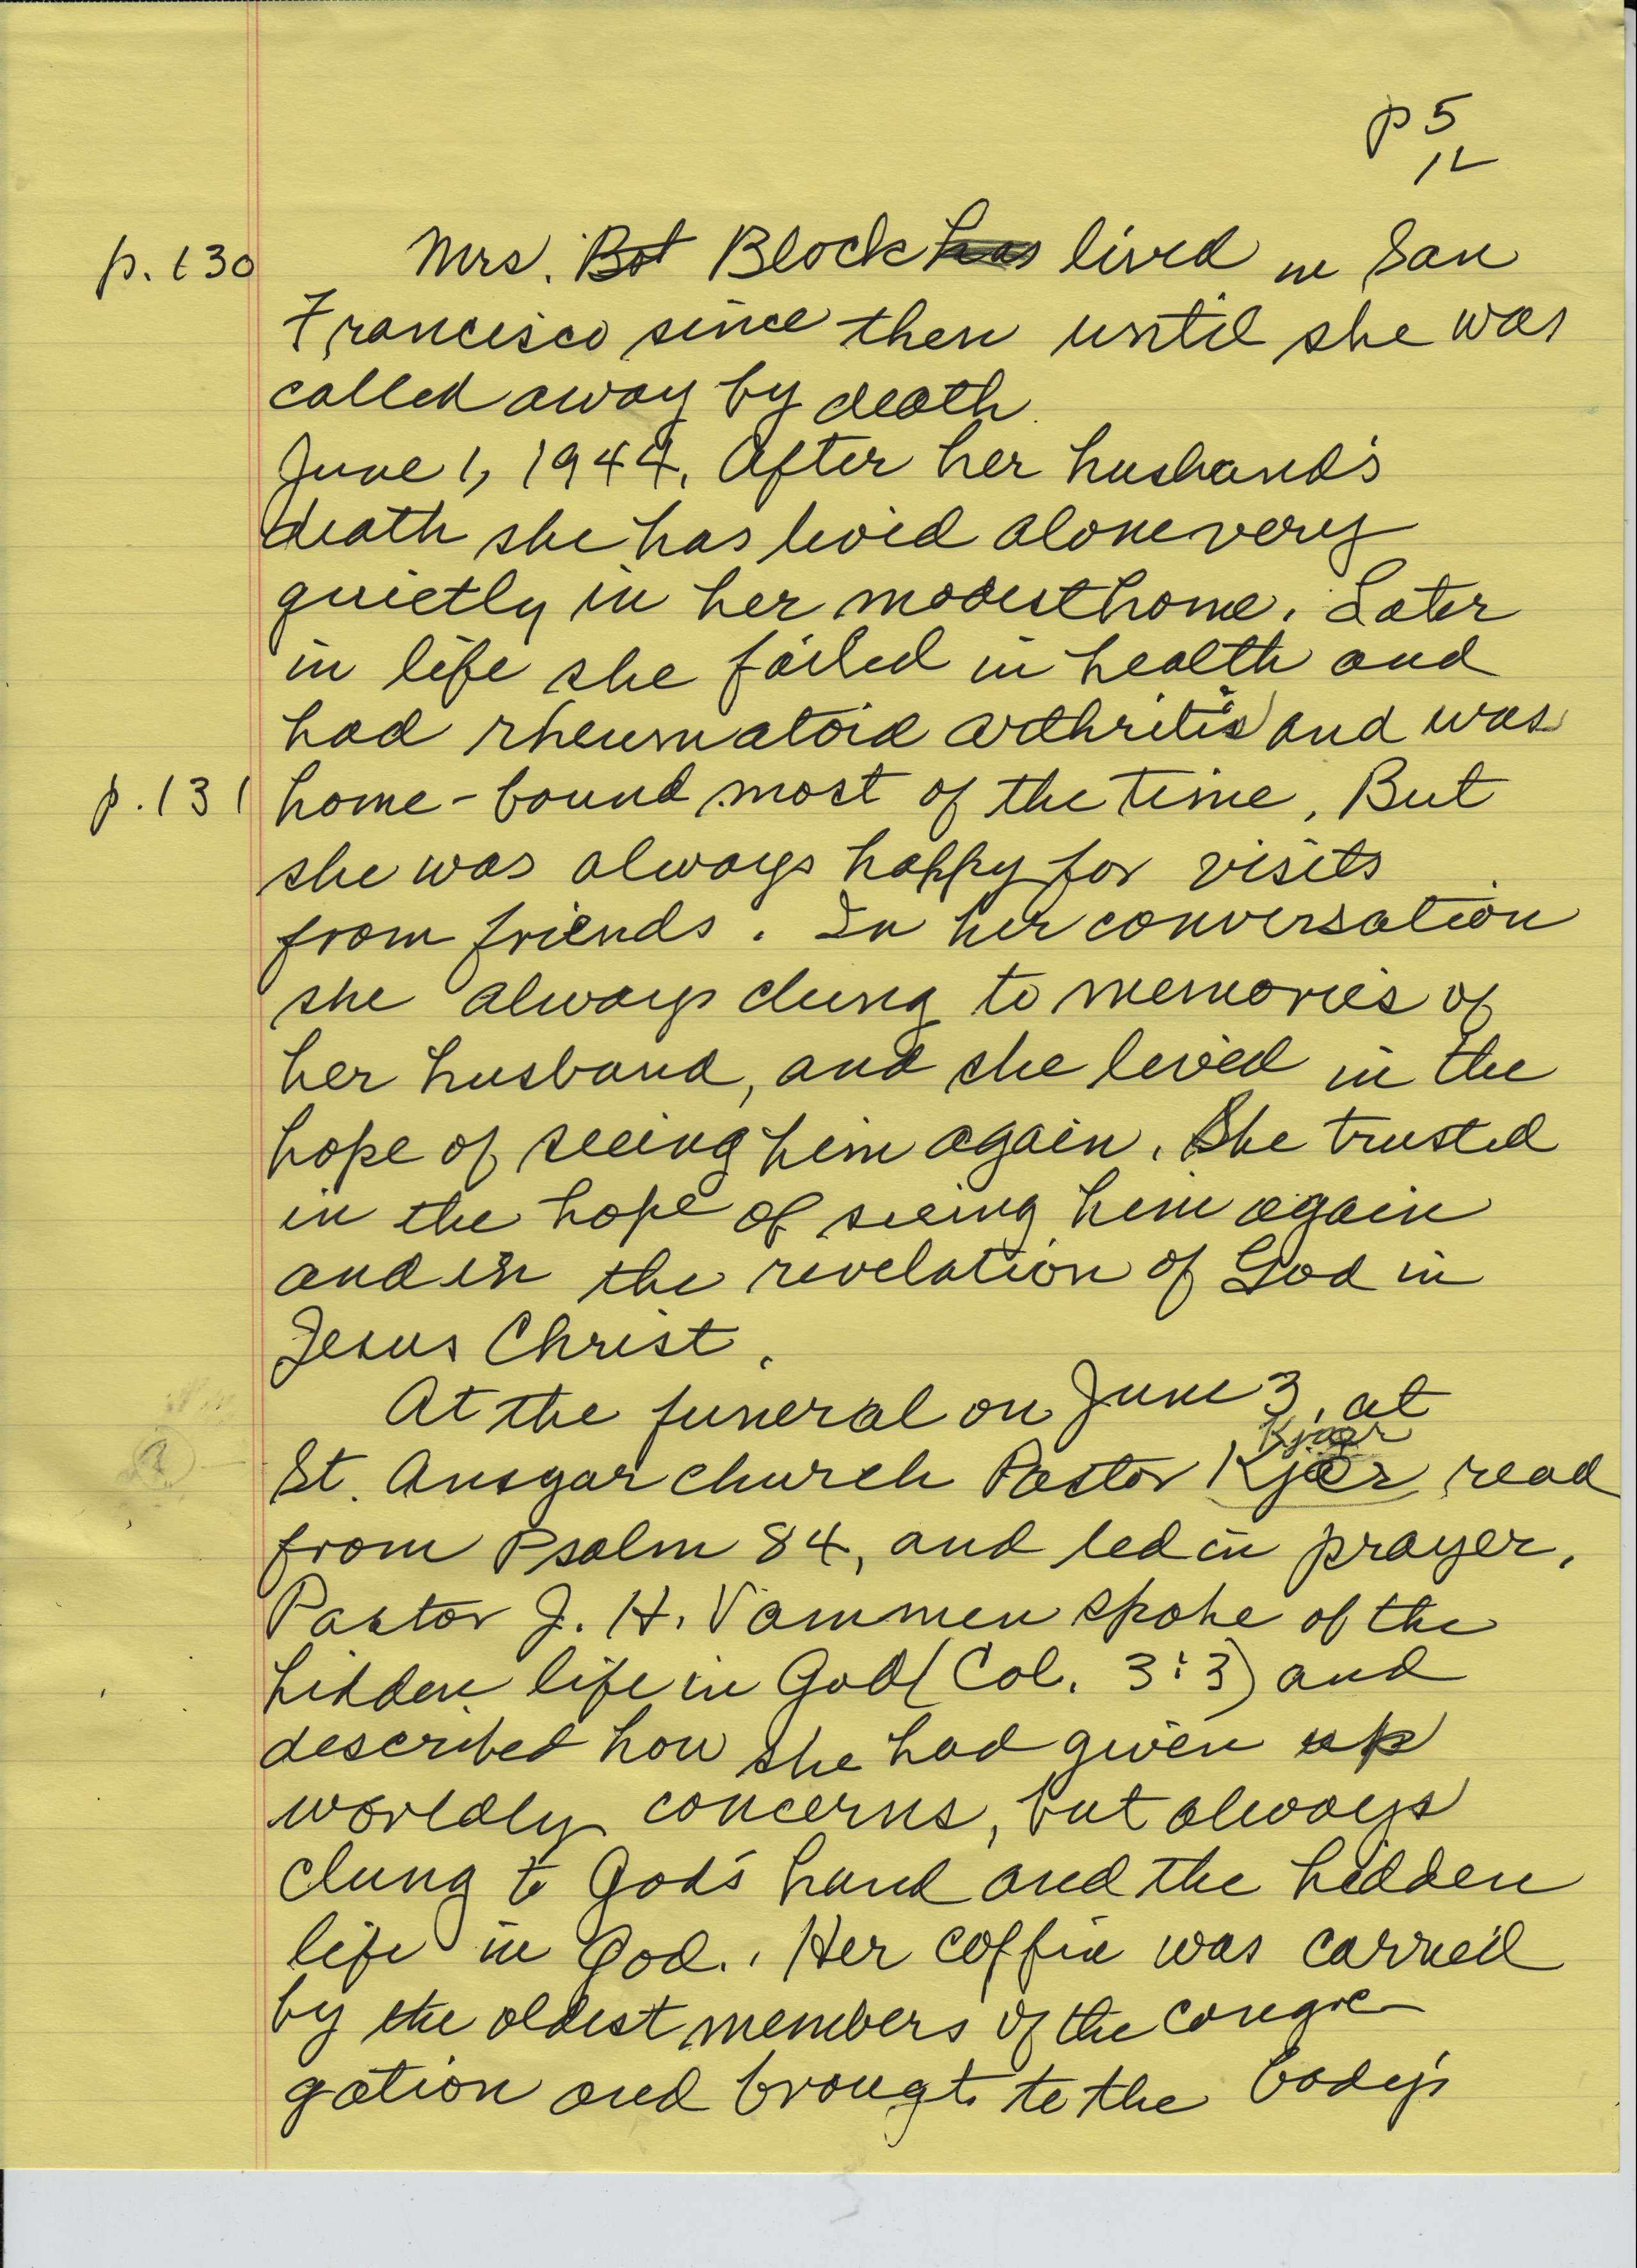 p 5
12
p. 130 Mrs. Bot Block has lived in San
Francisco since then until she was
called away by death
June 1, 1944. After her husband's
death she has lived alone very
quietly in her modest home. Later
in life she failed in health and
had rheumatoid arthritis and was
p. 131 home-bound most of the time. But
she was always happy for visits
from friends. In her conversation
she always clung to memories of
her husband, and she lived in the
hope of seeing him again. She trusted
in the hope of seeing him again
and in the revelation of God in
Jesus Christ.
At the funeral on June 3, at
Kjaer
St. Ansgar church Pastor Kjaer read
from Psalm 84, and led in prayer.
Pastor J. H. Vammen spoke of the
hidden life in God (Col. 3:3) and
described how she had given up
worldly concerns, but always
clung to God's hand and the hidden
life in God.. Her coffin was carried
by the oldest members of the congre-
gation and brougt to the body's